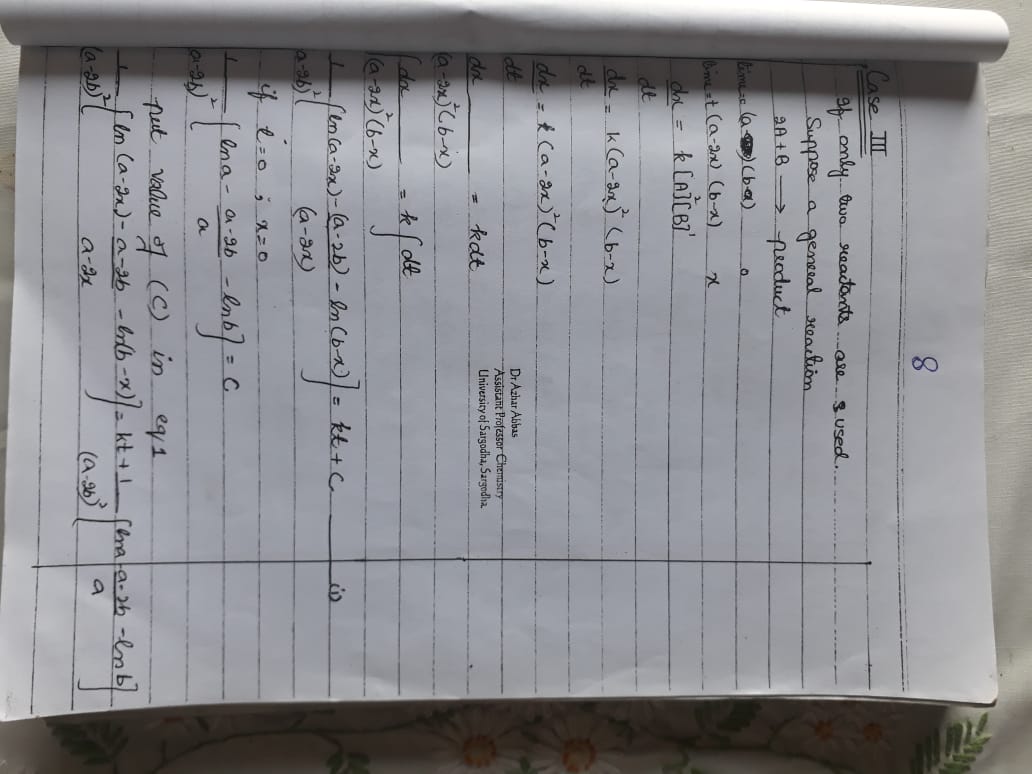 8
Case III
If only two reactants are used.
Suppose a general reaction
2A + B → product
time = 0 (a) (b) 0
time = t (a-2x) (b-x) x
dx/dt = k [A]² [B]¹
dx/dt = k (a-2x)² (b-x)
dx/dt = k (a-2x)² (b-x)
dx/(a-2x)² (b-x) = kdt
∫ dx/(a-2x)² (b-x) = k ∫ dt
Dr. Azhar Abbas
Assistant Professor Chemistry
University of Sargodha, Sargodha
1/(a-2b)² [ln(a-2x) - (a-2b)/(a-2x) - ln(b-x)] = kt + C — (i)
if t = 0 ; x = 0
1/(a-2b)² [ln a - a-2b/a - ln b] = C
put value of (C) in eq 1
1/(a-2b)² [ln (a-2x) - a-2b/a-2x - ln(b-x)] = kt + 1/(a-2b)² [ln a - a-2b/a - ln b]